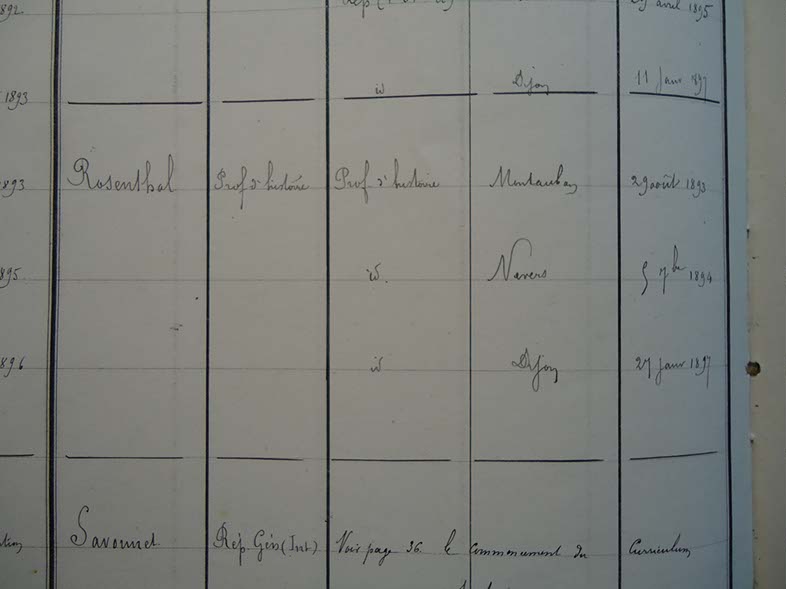 1892 Rép 29 avril 1895
1893 id Dijon 11 Janv 897
1893 Rosenthal Prof d'histoire Prof d'histoire Montauban 29 août 1893
895 id. Nevers 5 7bre 1894
896 id Dijon 27 janv 1897
Savonnet Rép. Gén (Int) Voir page 36. le commencement du Curriculum